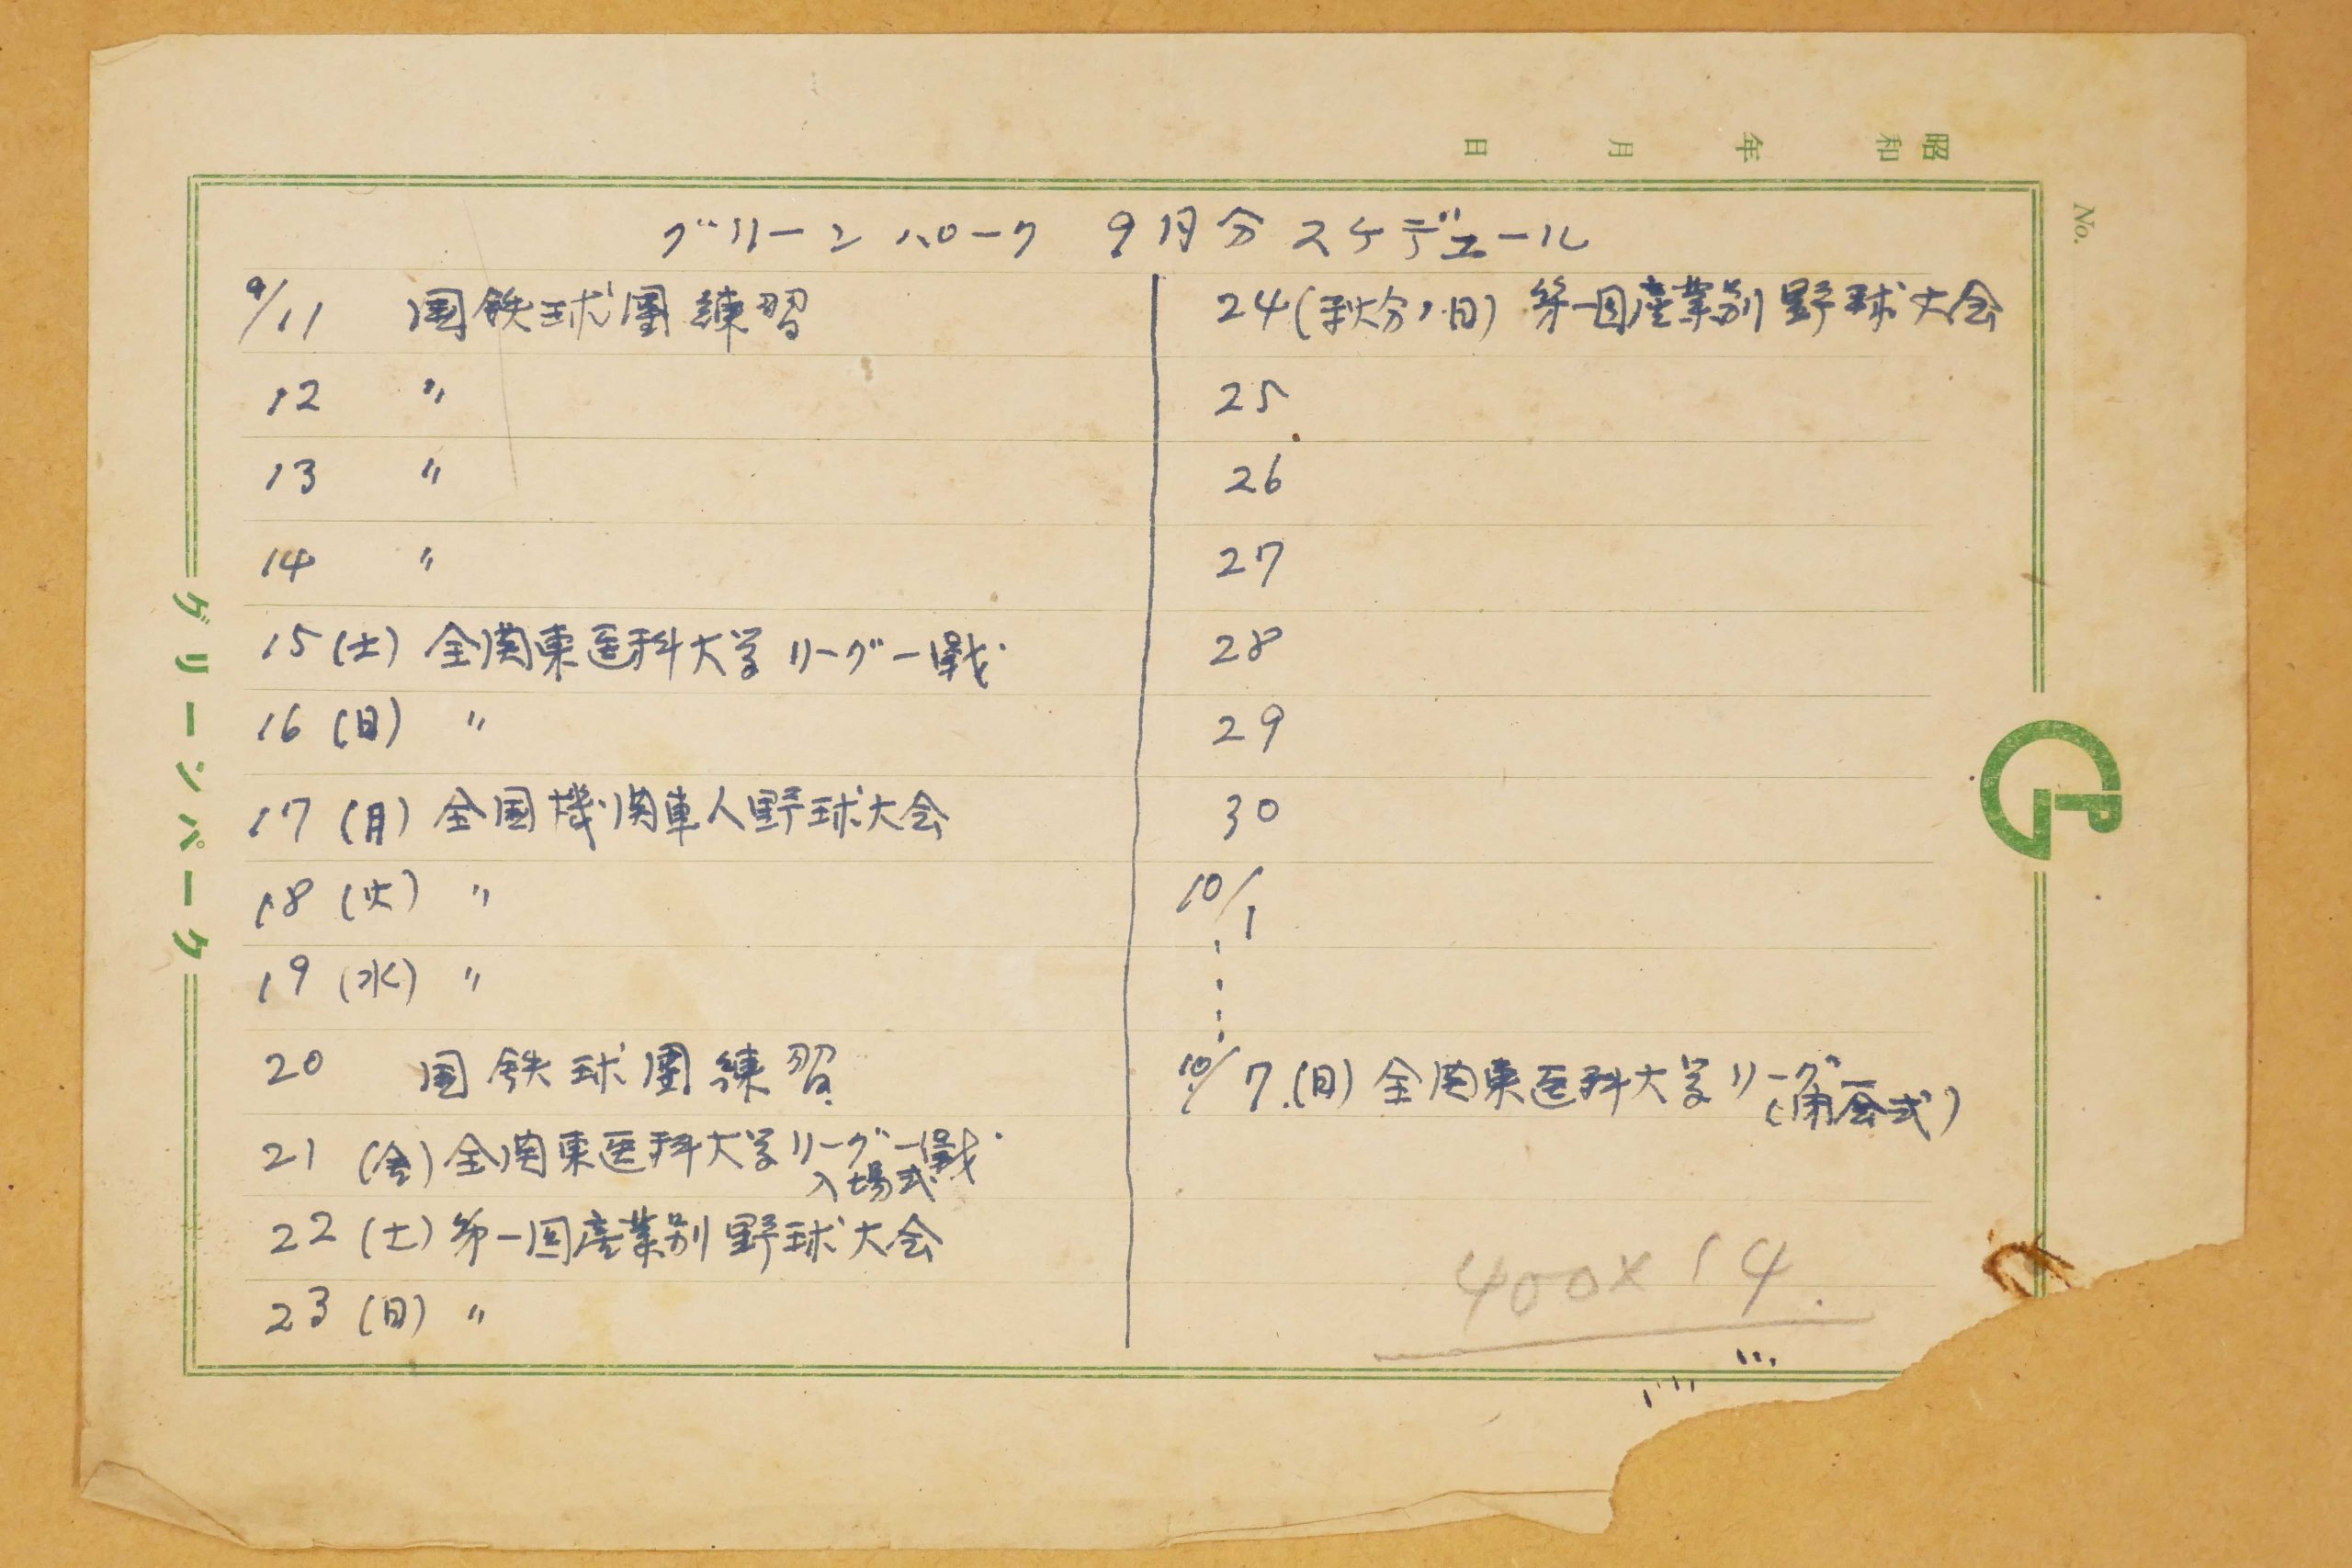 昭和　年　月　日
No.
グリーンパーク　9月分スケデュール
9/11　国鉄球團練習
12　〃
13　〃
14　〃
15(土)全関東医科大学リーグー戦
16(日)　〃
17(月)全国機関車人野球大会
18(火)　〃
19(水)　〃
20　国鉄球團練習
21(金)全関東医科大学リーグー戦
入場式
22(土)第一回産業別野球大会
23(日)　〃
24(秋分ノ日)第一回産業別野球大会
25
26
27
28
29
30
10/1
10/7.(日)全関東医科大学リーグ
(閉会式)
400×14.
グリーンパーク
GP